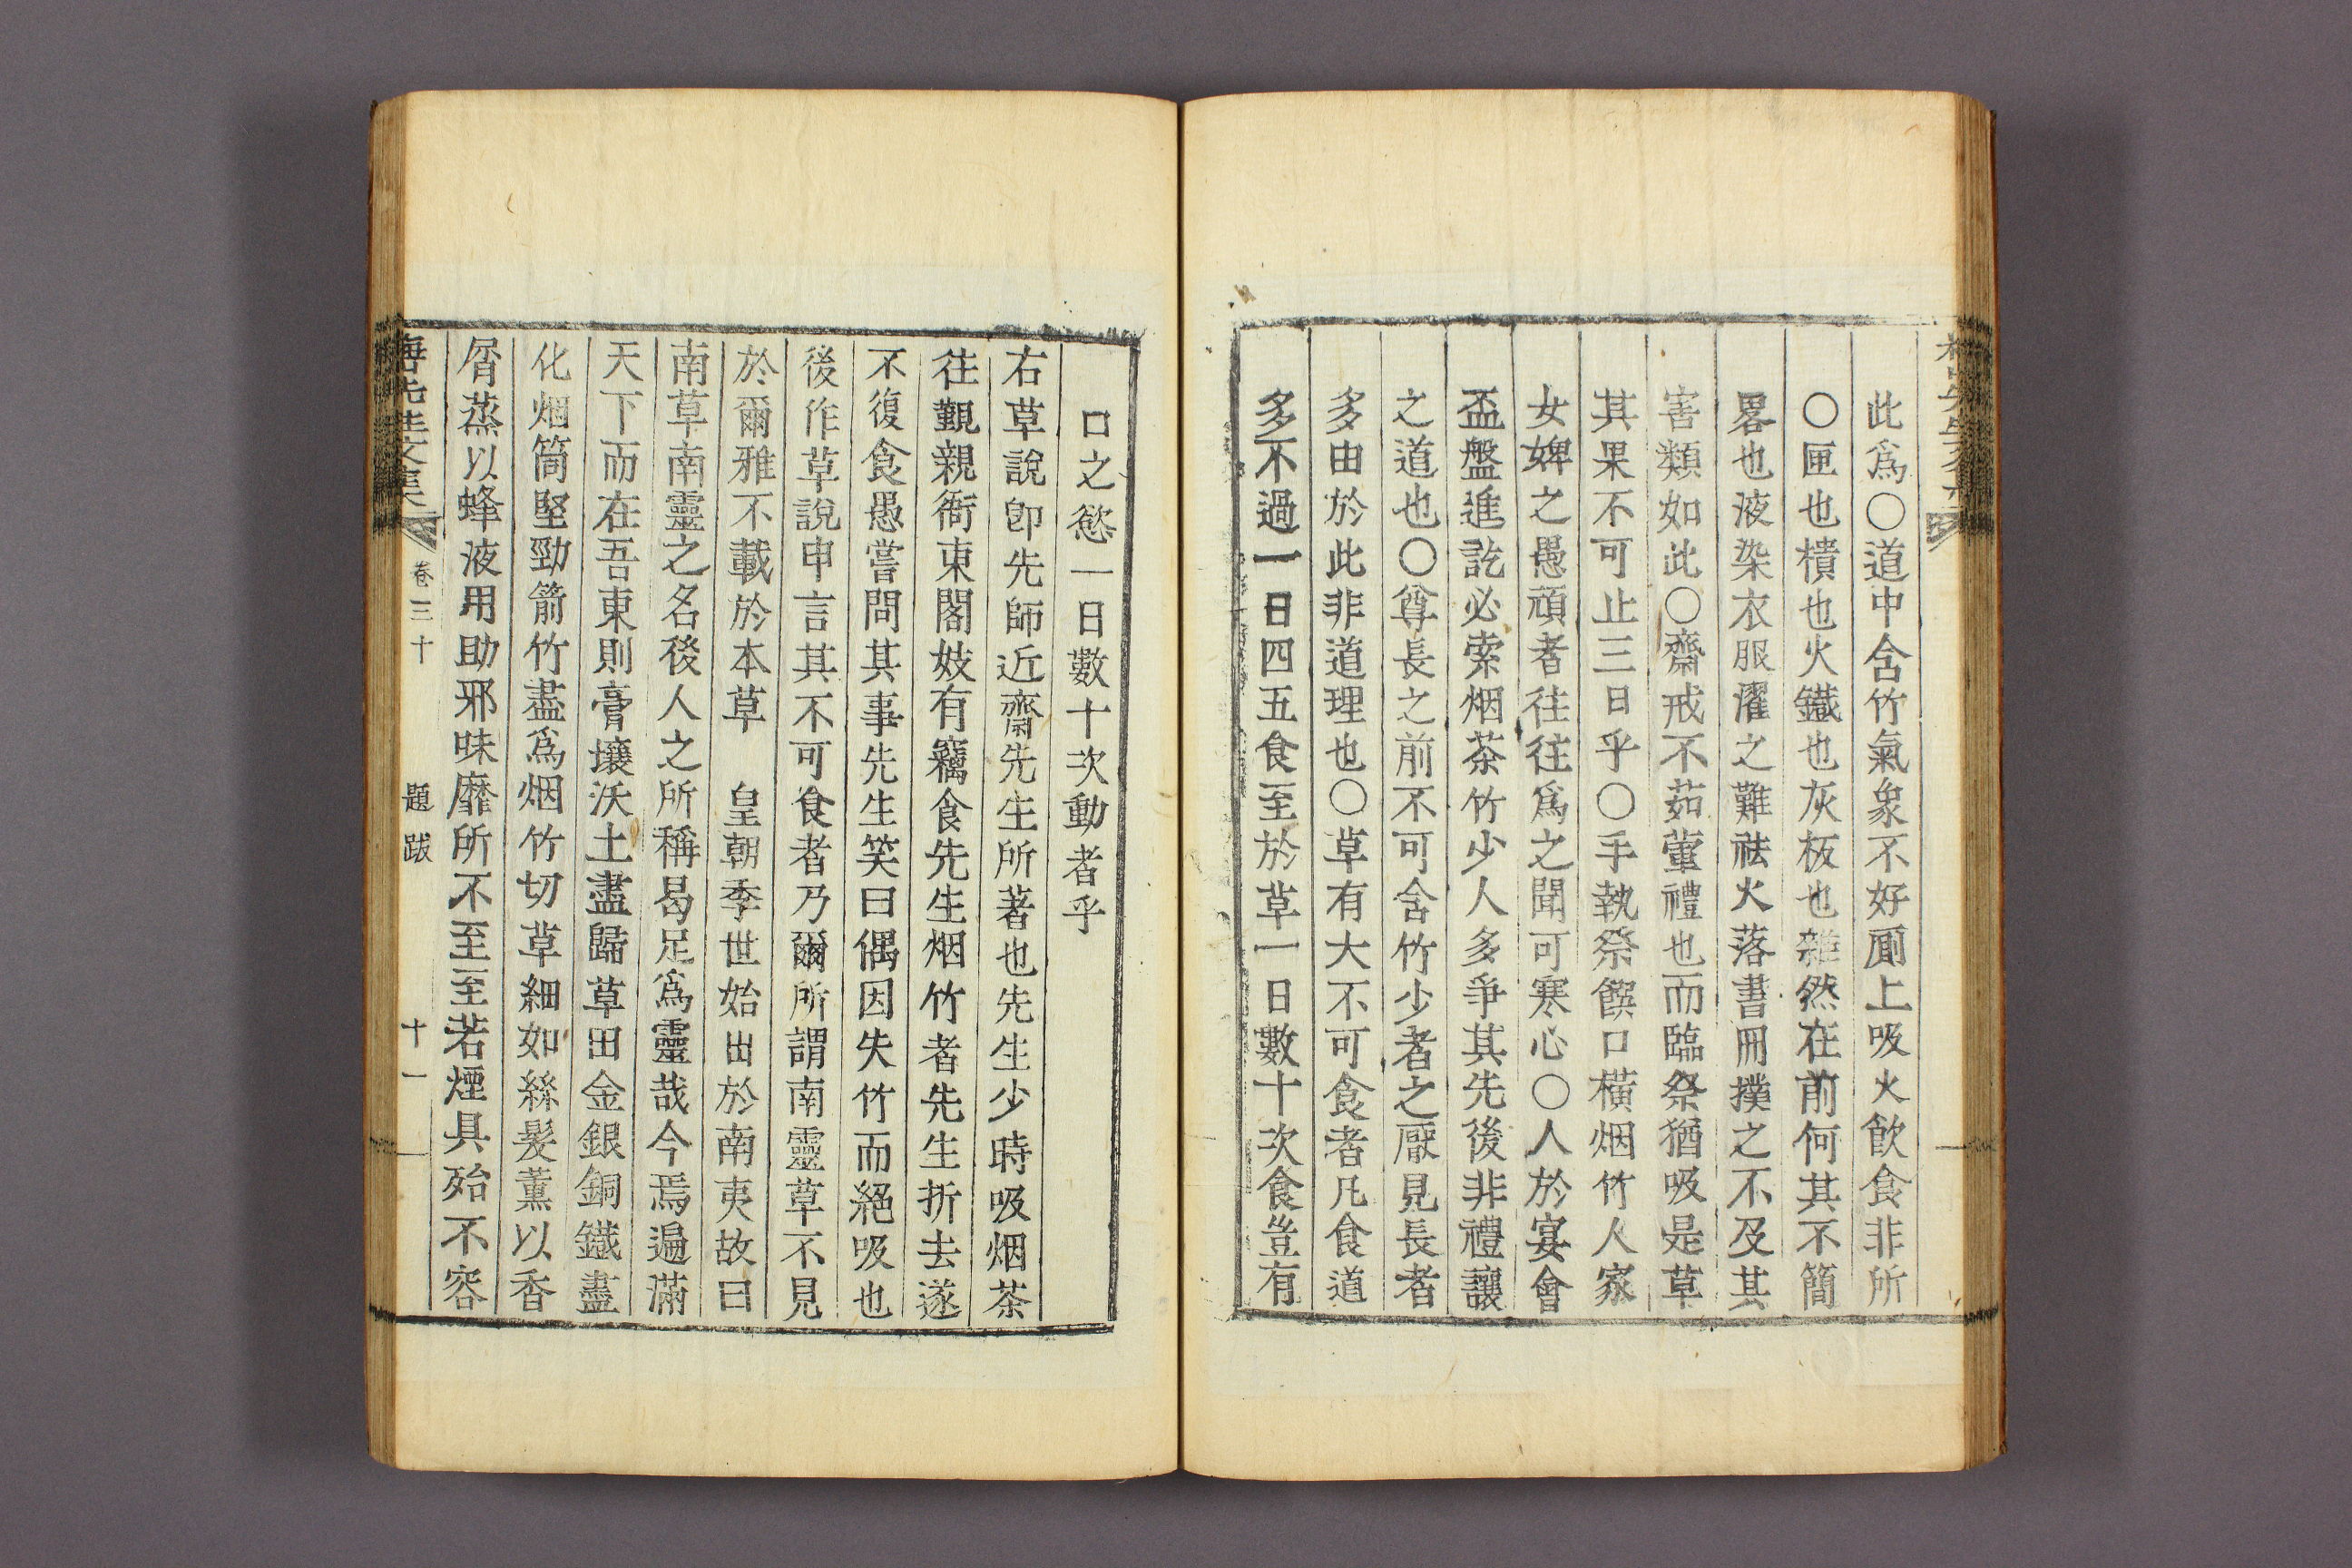 此爲○道中含竹氣象不好厠上吸火飮食非所
○匣也樻也火鐵也灰板也雜然在前何其不簡
畧也液染衣服濯之難祛火落書冊撲之不及其
害類如此○齋戒不茹葷禮也而臨祭猶吸是草
其果不可止三日乎○手執祭饌口橫烟竹人家
女婢之愚頑者往往爲之聞可寒心○人於宴會
盃盤進訖必索烟茶竹少人多爭其先後非禮讓
之道也○尊長之前不可含竹少者之厭見長者
多由於此非道理也○草有大不可食者凡食道
多不過一日四五食至於草一日數十次食豈有
口之慾一日數十次動者乎
右草說卽先師近齋先生所著也先生少時吸烟茶
往覲親衙東閣妓有竊食先生烟竹者先生折去遂
不復食愚嘗問其事先生笑曰偶因失竹而絕吸也
後作草說申言其不可食者乃爾所謂南靈草不見
於爾雅不載於本草 皇朝季世始出於南夷故曰
南草南靈之名後人之所稱曷足爲靈哉今焉遍滿
天下而在吾東則膏壤沃土盡歸草田金銀銅鐵盡
化烟筒堅勁箭竹盡爲烟竹切草細如絲髮薰以香
屑蒸以蜂液用助邪味靡所不至至若煙具殆不容
卷三十 題跋 十一